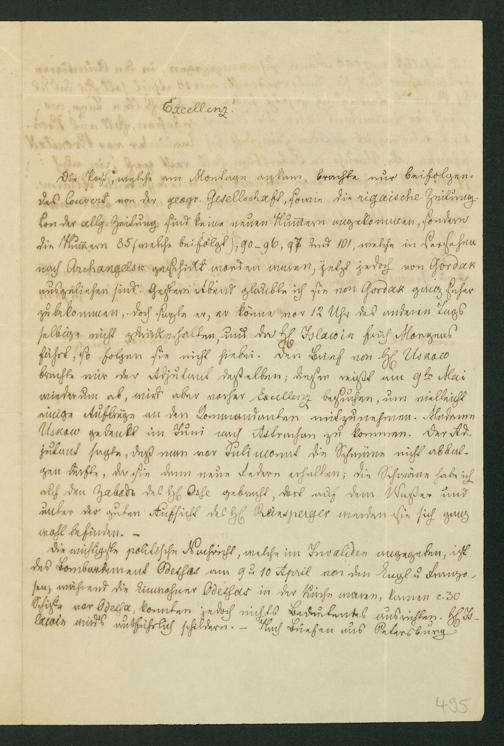 Excellenz!
Die Post, welche am Montage ankam, brachte nur beifolgen-
des Couvert von der geogr. Gesellschaft, sowie die rigaische Zeitung.
Von der allg. Zeitung sind keine neuen Nummern angekommen, sondern
die Nummern 85 (welche beifolgt), 90-96, 97 und 101, welche in
nach Archangelsk geschickt worden waren, jetzt jedoch von Gordak
ausgeliehen sind. Gestern Abend glaubte ich sie von Gordak ganz sicher
zu bekommen, doch sagte er, er könne vor 12 Uhr des anderen Tags
selbige nicht zurückerhalten, und da Hℓ Islawin früh Morgens
fährt, so folgen sie nicht hiebei. Den Brief von Hℓ Uskow
brachte mir der Adjutant desselben; dieser reist am 9ten Mai
wiederum ab, wird aber vorher Excellenz besuchen, um vielleicht
einige Aufträge an den Commandanten mitzunehmen. Madame
Uskow gedenkt im Juni nach Astrachan zu kommen. Der Ad-
jutant sagte, daß man vor Juli nicht die Schwäne abbal-
gen dürfte, da sie dann neue Federn erhalten; die Schwäne habe ich
auf den Zabode des Hℓ Osse gebracht, dort auf dem Wasser und
unter der guten Aufsicht des Hℓ Reinsperger werden sie sich ganz
wohl befinden. —
Die wichtigste politische Nachricht, welche im Invaliden angegeben, ist
das Bombardement Odessas am 9 u 10 April von den Engl u Franzo-
sen; während die Einwohner Odessas in der Kirche waren, kamen c. 30
Schiffe vor Odessa, konnten jedoch nichts Bedeutendes ausrichten. Hℓ Is-
lawin wird's ausführlich schildern. — Nach Briefen aus Petersburg
495